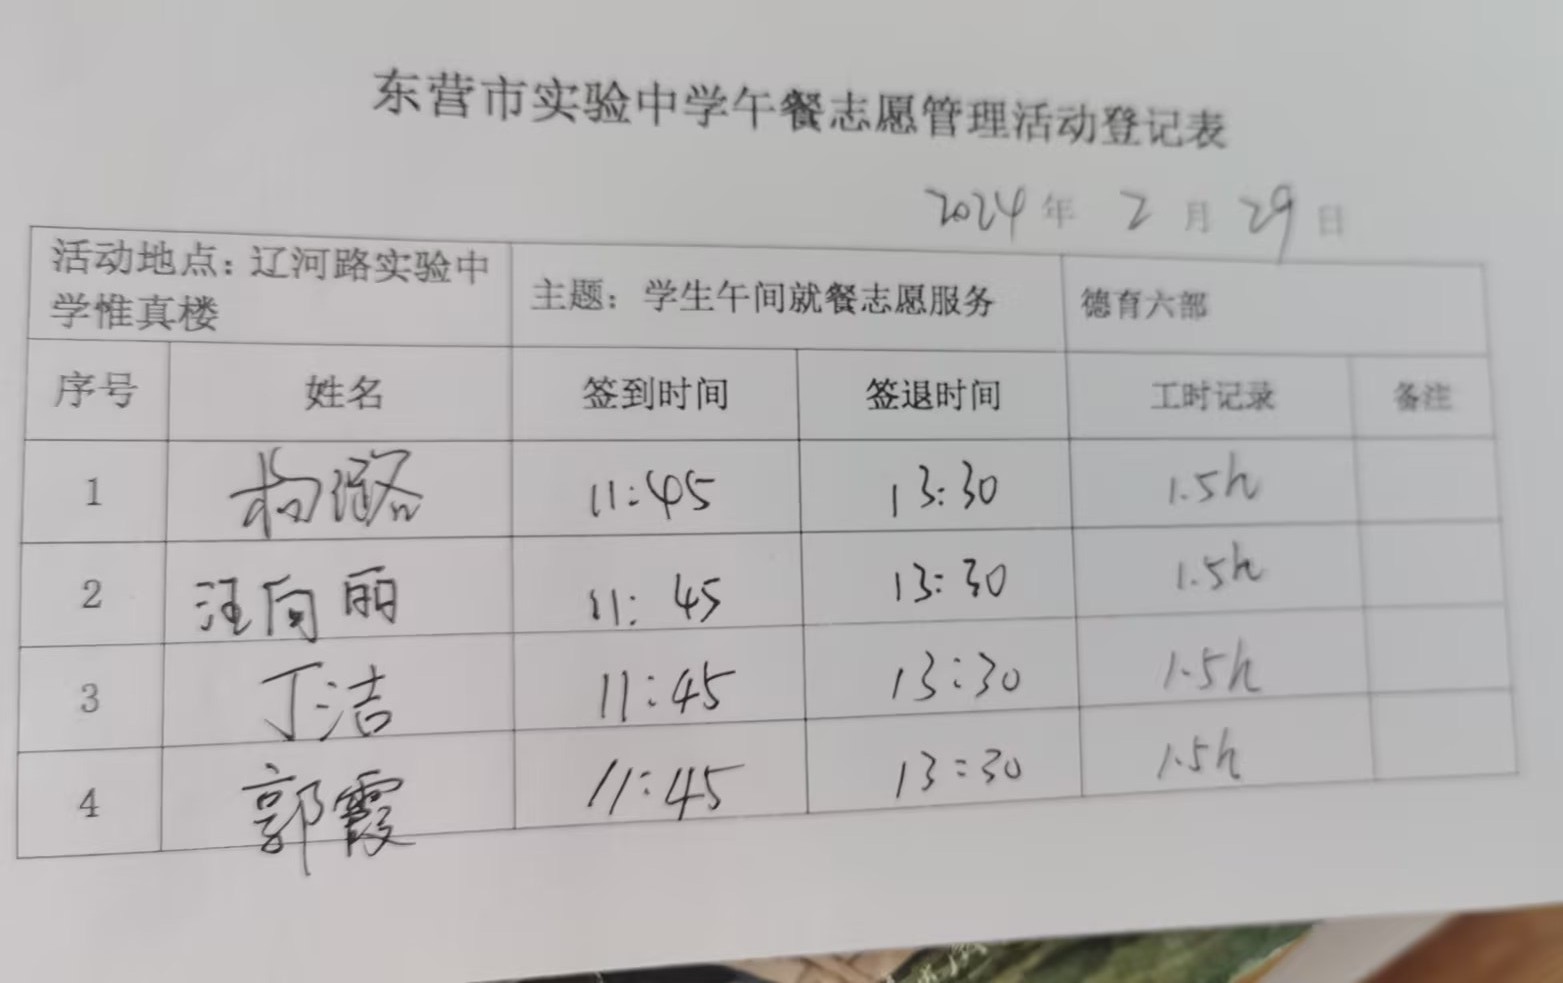 东营市实验中学午餐志愿管理活动登记表
2024年 2月 29日
活动地点：辽河路实验中
学惟真楼
主题：学生午间就餐志愿服务
德育六部
序号 姓名 签到时间 签退时间 工时记录 备注
1 11:45 13:30 1.5h
2 汪向丽 11:45 13:30 1.5h
3 丁洁 11:45 13:30 1.5h
4 郭霞 11:45 13:30 1.5h